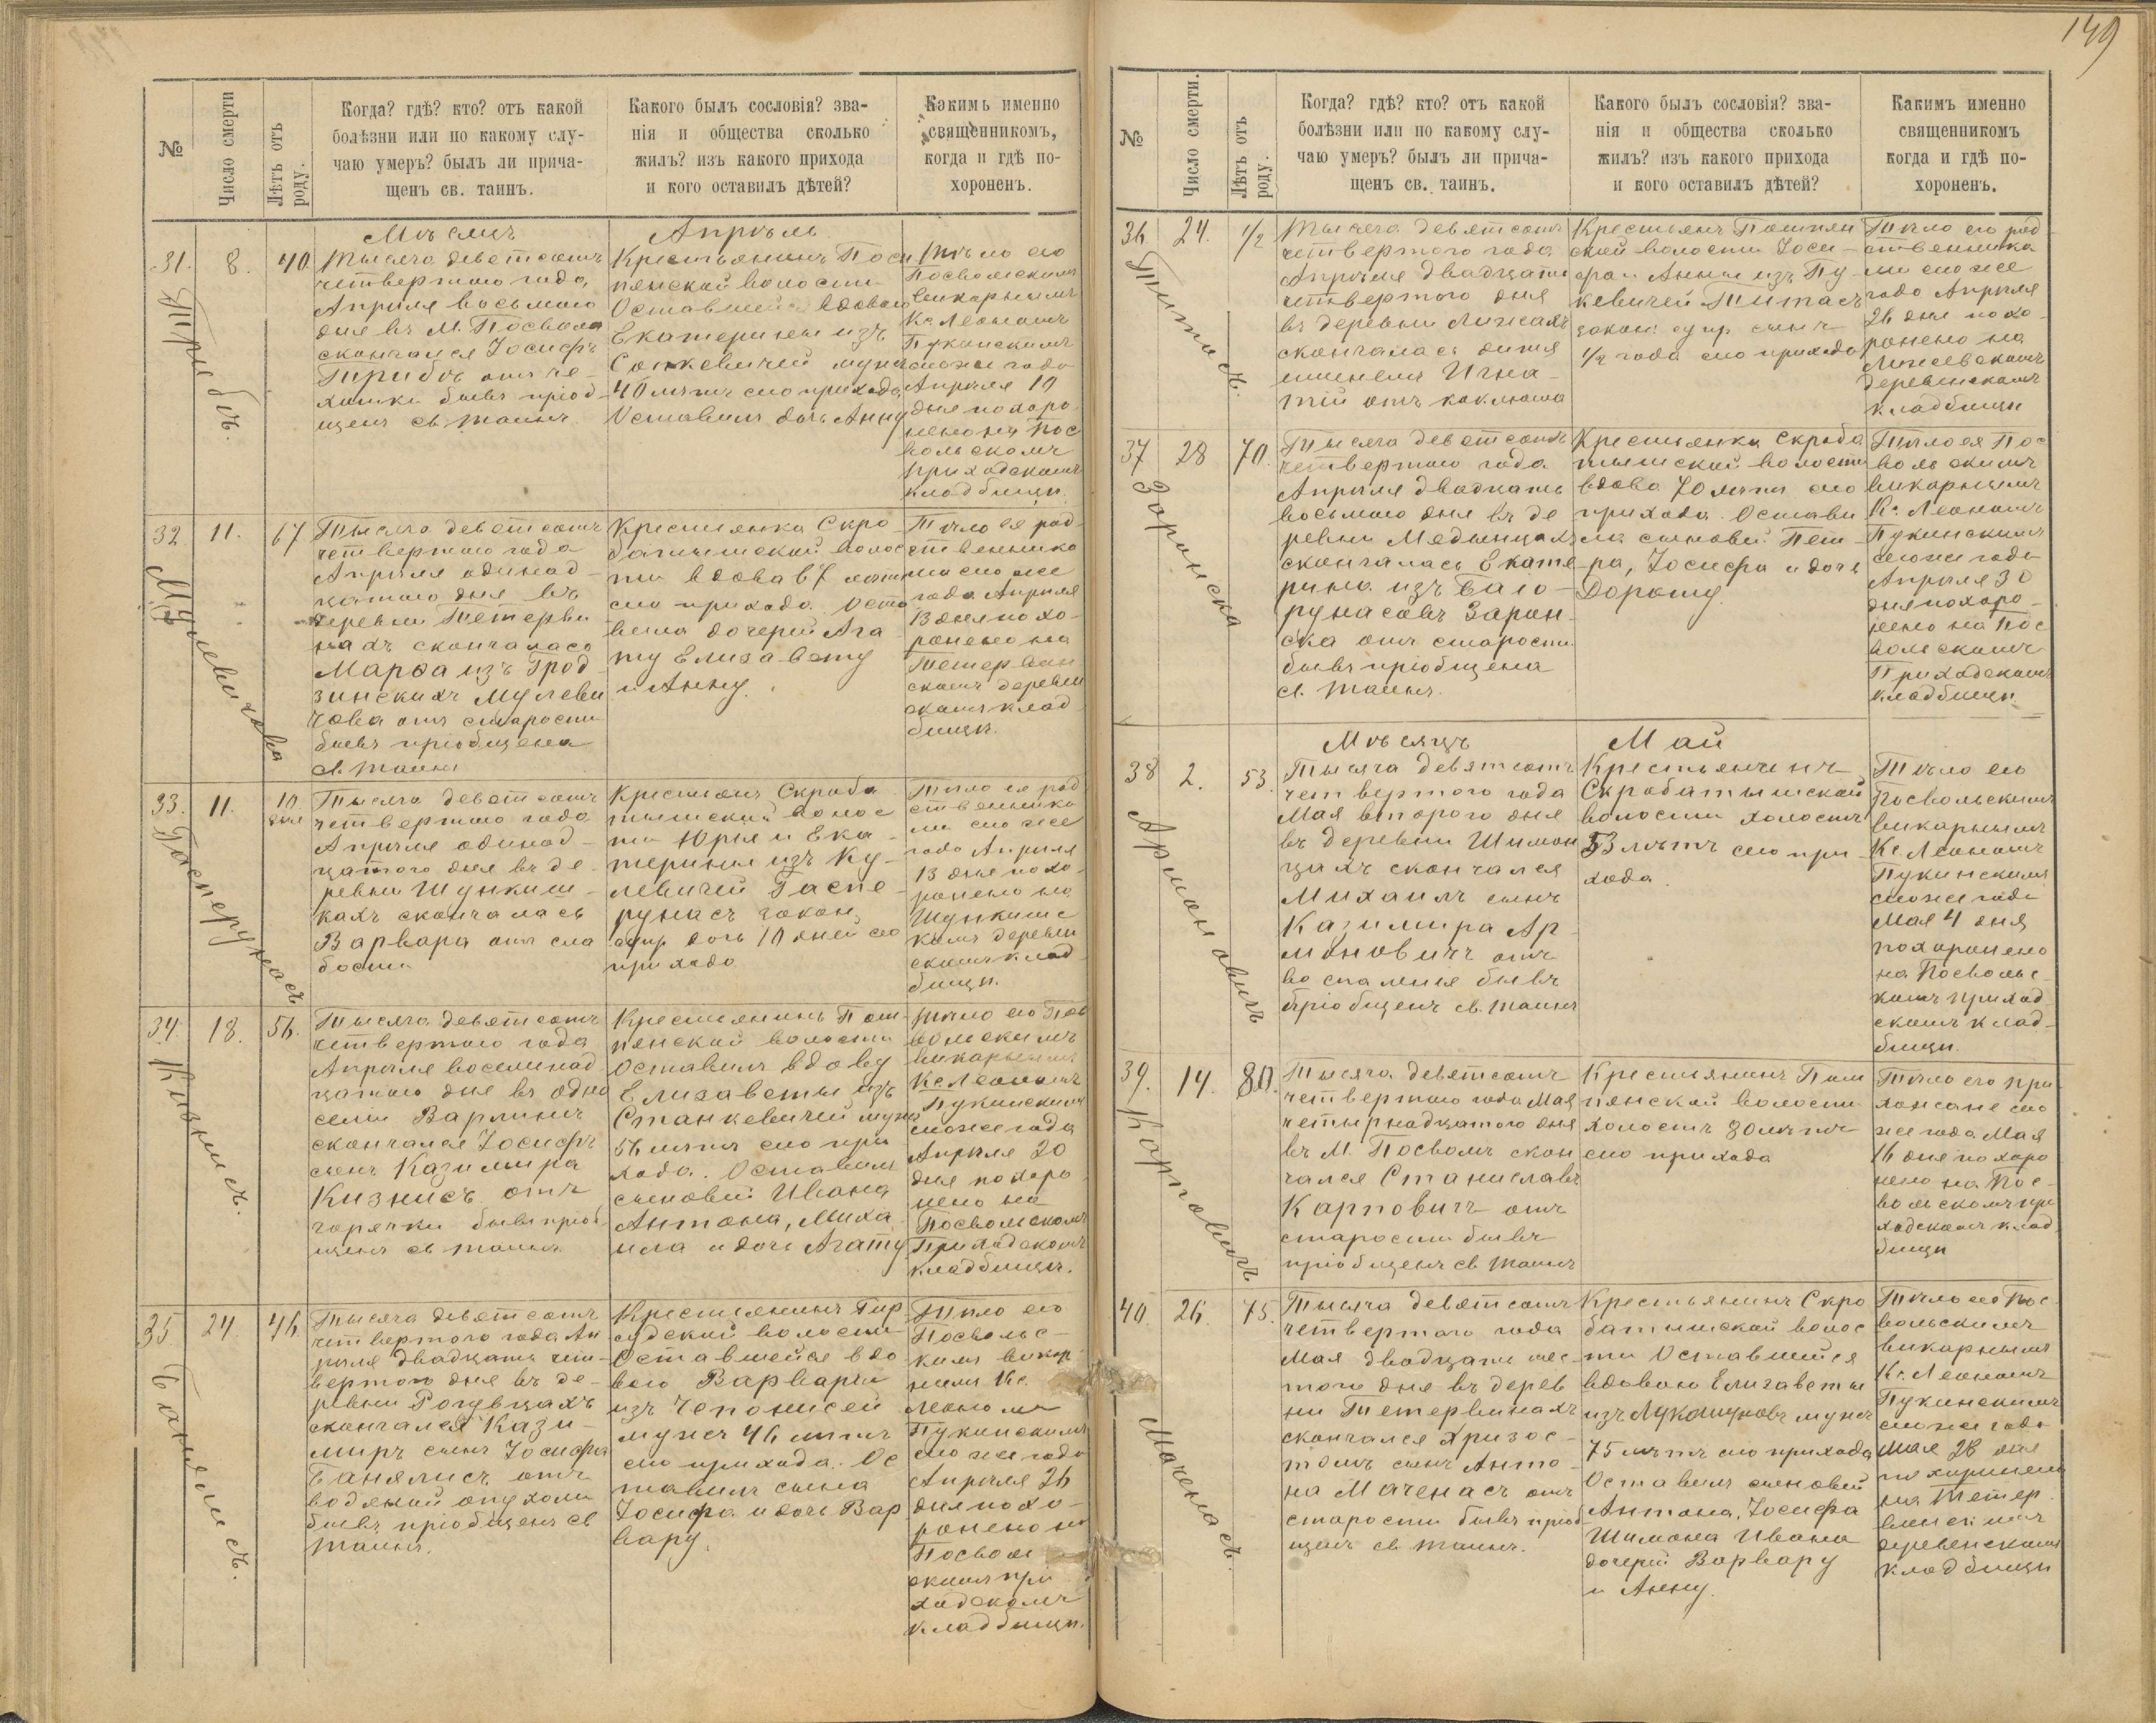 149
№
Число смерти
Лѣтъ отъ роду.
Когда? гдѣ? кто? отъ какой
болѣзни или по какому слу-
чаю умеръ? былъ ли прича-
щенъ св. таинъ.
Какого былъ сословія? зва-
нія и общества сколько
жилъ? изъ какого прихода
и кого оставилъ дѣтей?
Какимъ именно
священникомъ,
когда и гдѣ по-
хороненъ.
Мѣсяцъ Апрѣль
31. 8. 40.
Грибъ.
Тысяча девятсотъ
четвертого года,
Апрѣля восьмого
дня въ М. Посволя
скончался Іосифъ
Грибъ отъ че-
хотки бывъ пріоб-
щенъ св. таинъ
Крестьянинъ
волости
вдовою
Екатерины изъ
мужъ
40 лѣтъ сего прихода
Оставилъ дочь Анну
Тѣло его
Посвольскимъ
викарнымъ
Кс. Леономъ
Пукинскимъ
сего же года
Апрѣля 10
дня похоро-
нено на Пос
вольскомъ
приходскомъ
кладбищѣ.
32. 11. 67
Мулевичова
Тысяча девятсотъ
четвертого года
Апрѣля одинад-
цатого дня въ
деревни Тетерви
нахъ скончалась
Марѳа изъ Грод
зинскихъ Мулеви
чова отъ старости
бывъ пріобщена
св. таинъ
Крестьянка Скро-
батышской волос
ти вдова 67 лѣтъ
сего прихода. Оста
вила дочерей Ага-
ту Елизавету
и Анну.
Тѣло ея род-
ственника
ми сего же
года Апрѣля
13 дня похо-
ронено на
Тетервин
скомъ деревен
скомъ клад
бищѣ.
33. 11. 10. дня
Гасперунасъ
Тысяча девятсотъ
четвертого года
Апрѣля одинад-
цатого дня въ де-
ревни Шункиш-
кахъ скончалась
Варвара отъ сла
бости
Крестьянъ Скроба
тышской волос
ти Юрія и Ека-
терины изъ Ку-
левичей Гаспе-
рунасъ закон.
супр. дочь 10 дней сего
прихода
Тѣло ея род
ственника
ми сего же
года Апрѣля
13 дня похо-
ронено на
Шункишс
комъ деревен
скомъ клад
бищѣ.
34. 18. 56.
Кизнисъ.
Тысяча девятсотъ
четвертого года
Апрѣля восемнад
цатого дня въ одно
селіи Варлинъ
скончался Іосифъ
сынъ Казимира
Кизнисъ отъ
горячки бывъ пріоб-
щенъ св таинъ
Крестьянинъ Пом-
пянской волости
Оставилъ вдову
Елизаветы изъ
Станкевичей мужъ
56 лѣтъ сего при
хода. Оставилъ
сыновей Ивана
Антона, Миха
ила и дочь Агату
Тѣло его Пос
вольскимъ
викарнымъ
Кс. Леономъ
Пукинскимъ
сего же года
Апрѣля 20
дня похоро
нено на
Посвольскомъ
Приходскомъ
кладбищѣ.
35 24. 46.
Банялисъ.
Тысяча девятсотъ
четвертого года Ап
рѣля двадцать чет-
вертого дня въ де-
ревни Рогувцахъ
скончался Кази-
миръ сынъ Іосифа
Банялисъ отъ
водяной опухоли
бывъ пріобщенъ св
таинъ.
Крестьянинъ Гир
судской волости
Оставшейся вдо
вою Варвары
изъ Чепонисей
мужъ 46 лѣтъ
сего прихода. Ос
тавилъ сына
Іосифа и дочь Вар
вару.
Тѣло его
Посвольс-
кимъ викар
нымъ Кс.
Леономъ
Пукинскимъ
сего же года
Апрѣля 26
дня похо-
ронено на
Посволь
скомъ при
ходскомъ
кладбищѣ.
№
Число смерти.
Лѣтъ отъ роду.
Когда? гдѣ? кто? отъ какой
болѣзни или по какому слу-
чаю умеръ? былъ ли прича-
щенъ св. таинъ.
Какого былъ сословія? зва-
нія и общества сколько
жилъ? изъ какого прихода
и кого оставилъ дѣтей?
Какимъ именно
священникомъ
когда и гдѣ по-
хороненъ.
36 24. 1/2
Титасъ.
Тысяча девятсотъ
четвертого года
Апрѣля двадцать
четвертого дня
въ деревни
скончалась дитя
именемъ Игна-
тій отъ коклюша
Крестьянъ Помпян
ской волости Іоси-
фа и Анны изъ Пу-
кевичей Титасъ
закон. супр. сынъ
1/2 года сего прихода
Тѣло его род
ственника
ми сего же
года Апрѣля
26 дня похо-
ронено на
деревенскомъ
кладбищѣ
37 28 70.
Заронска
Тысяча девятсотъ
четвертого года
Апрѣля двадцать
восьмого дня въ де
ревни Медынцахъ
скончалась Екате
рина изъ Бало-
рунасовъ Зарон-
ска отъ старости
бывъ пріобщена
св. таинъ.
Крестьянка Скроба
тышской волости
вдова 70 лѣтъ сего
прихода. Остави
ла сыновей Пет-
ра, Іосифа и дочь
Дороту.
Тѣло ея Пос
вольскимъ
викарнымъ
Кс. Леономъ
Пукинскимъ
сего же года
Апрѣля 30
дня похоро-
нено на Пос
вольскомъ
Приходскомъ
кладбищѣ.
Мѣсяцъ Май
38 2. 53.
Армоновичъ
Тысяча девятсотъ
четвертого года
Мая второго дня
въ деревни Шимон
цахъ скончался
Михаилъ сынъ
Казимира Ар-
моновичъ отъ
воспаленія бывъ
пріобщенъ св. таинъ
Крестьянинъ
Скробатышской
волости холостъ
53 лѣтъ сего при-
хода
Тѣло его
Посвольскимъ
викарнымъ
Кс. Леономъ
Пукинскимъ
сего же года
Мая 4 дня
похоронено
на Посвольс-
комъ приход-
скомъ клад-
бищѣ.
39. 14. 80.
Карповичъ
Тысяча девятсотъ
четвертого года Мая
четырнадцатого дня
въ М. Посволъ скон
чался Станиславъ
Карповичъ отъ
старости бывъ
пріобщенъ св. таинъ
Крестьянинъ Пом
пянской волости
холостъ 80 лѣтъ
сего прихода
Тѣло его при
хожане сего
же года Мая
16 дня похоро
нено на Пос-
вольскомъ при
ходскомъ клад
бищѣ
40. 26. 75.
Маченасъ.
Тысяча девятсотъ
четвертого года
Мая двадцать шес-
того дня въ дерев
ни Тетервинахъ
скончался Хризос-
томъ сынъ Анто-
на Маченасъ отъ
старости бывъ пріоб
щенъ св. таинъ.
Крестьянинъ Скро
батышской волос
ти Оставшейся
вдовою Елизаветы
изъ Лукошуновъ мужъ
75 лѣтъ сего прихода
Оставилъ сыновей
Антона, Іосифа
Шимона Ивана
дочерей Варвару
и Анну.
Тѣло его Пос-
вольскимъ
викарнымъ
Кс. Леономъ
Пукинскимъ
сего же года
Мая 28 дня
похоронено
на Тетер-
винскомъ
деревенскомъ
кладбищѣ